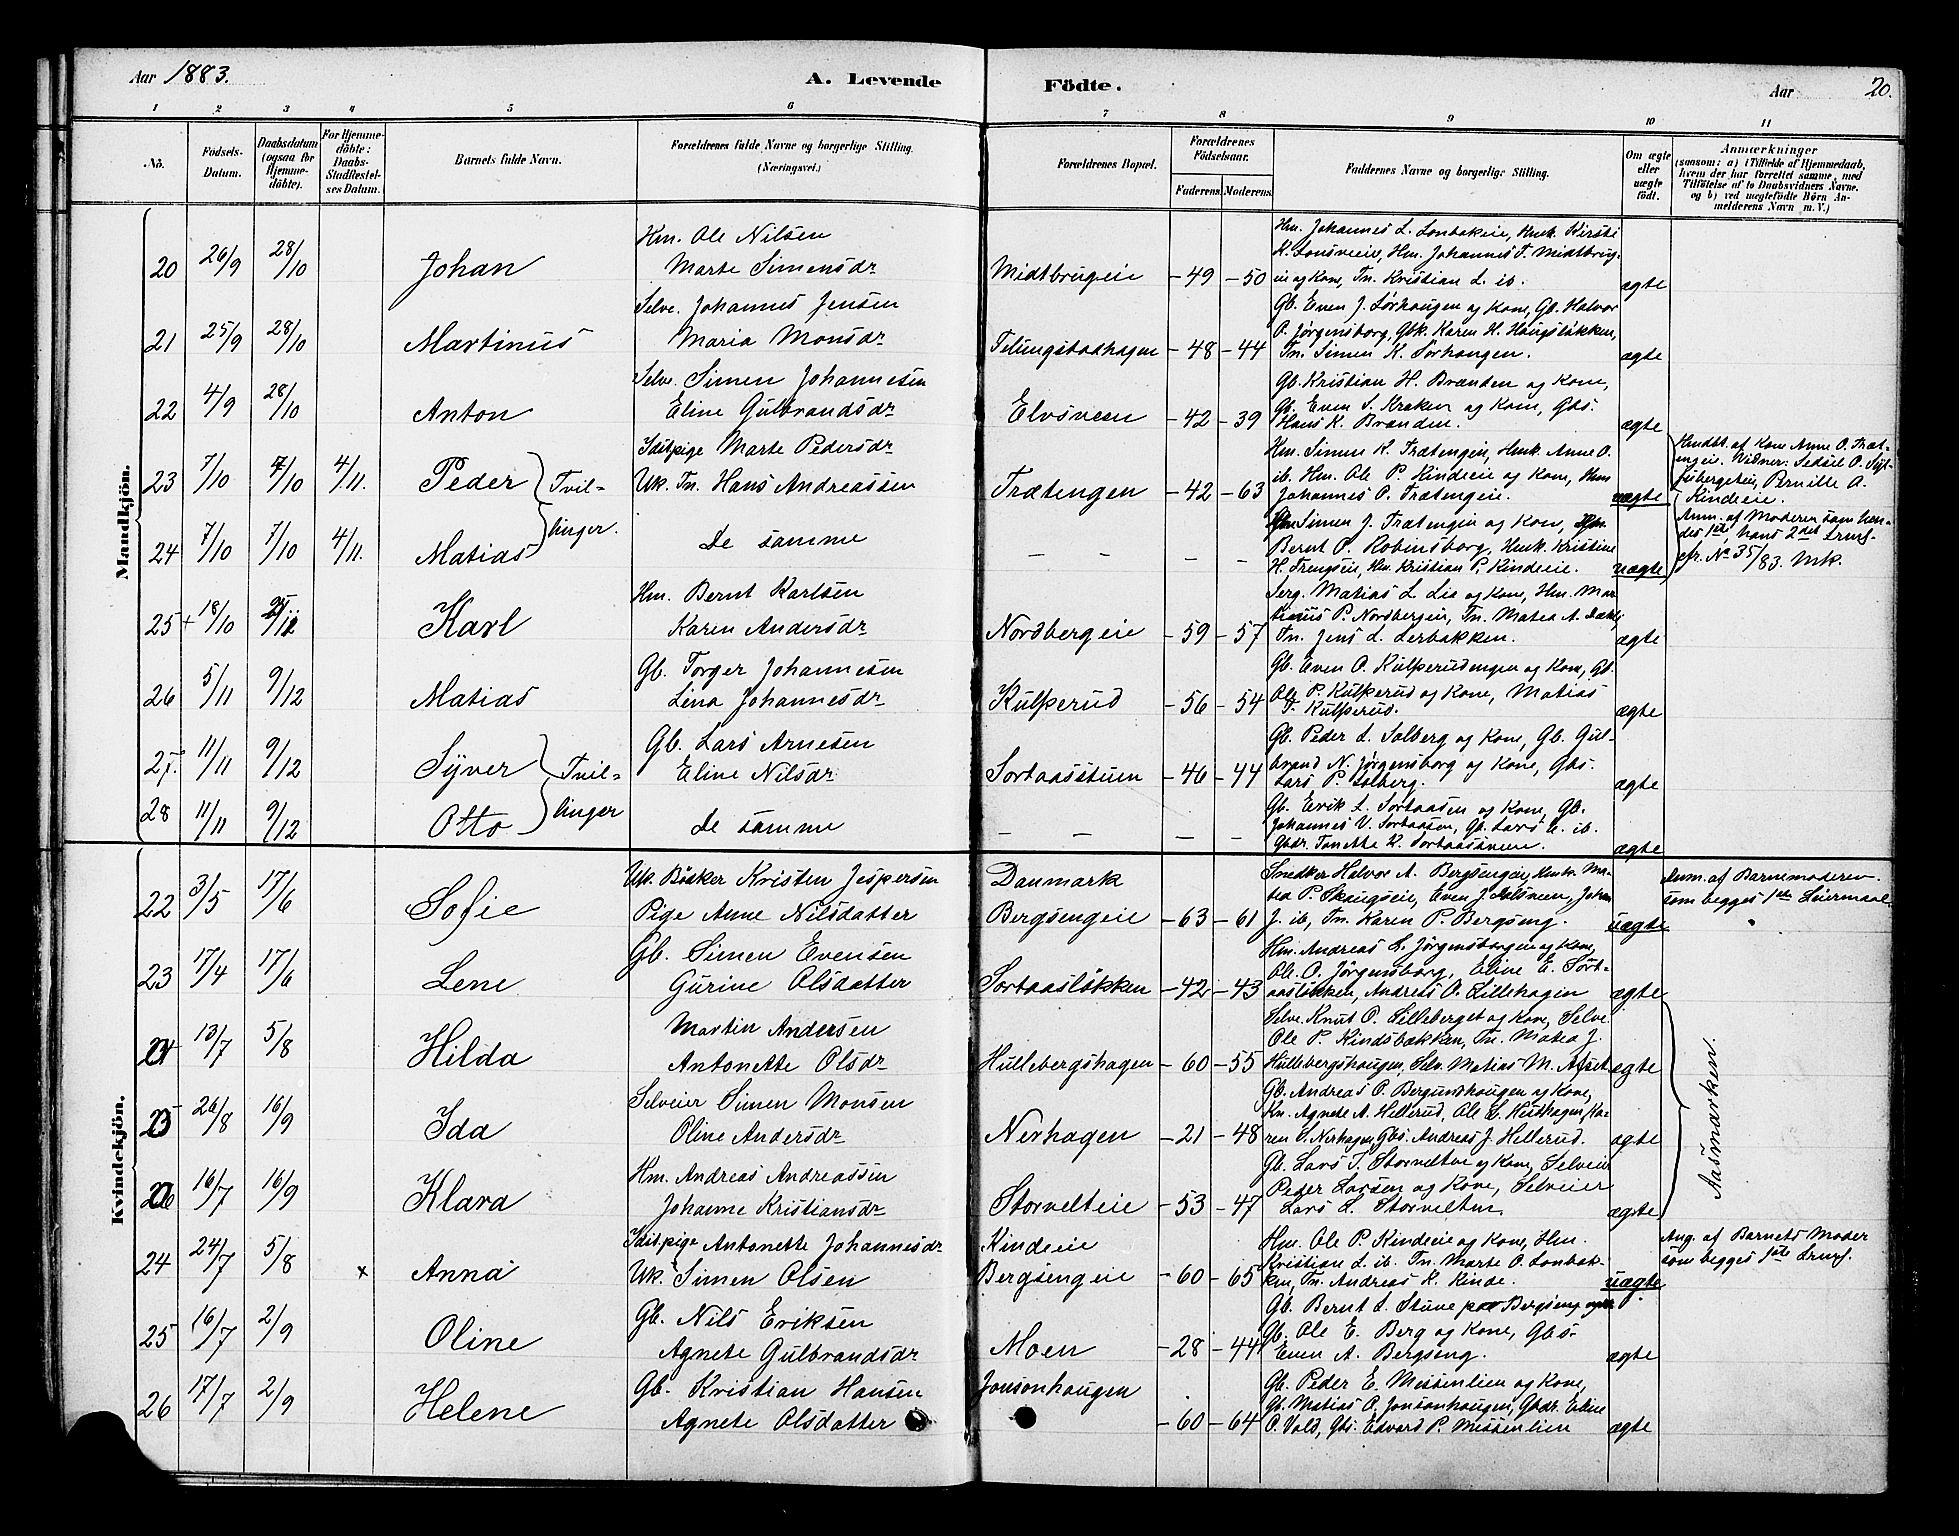 Aar 1883.
A. Levende Födte.
Aar 20.
1 2 3 4 5 6 7 8 9 10 11
No.
Födsels-Datum.
Daabsdatum (ogsaa for Hjemmedöbte).
For Hjemmedöbte: Daabs-Stadfestelses Datum.
Barnets fulde Navn.
Forældrenes fulde Navne og borgerlige Stilling. (Næringsvei.)
Forældrenes Bopæl.
Forældrenes Födselsaar.
Faderens. Moderens.
Faddernes Navne og borgerlige Stilling.
Om ægte eller uægte födt.
Anmærkninger
(saasom: a) i Tilfælde af Hjemmedaab, hvem der har forrettet samme, med Tilföielse af to Daabsvidners Navne. og b) ved uægtefödte Börn Anmelderens Navn m. V.)
Mandkjön.
20 26/9 28/10 Johan
Hm. Ole Nilsen
Marte Simensdr
Midtbrugeie - 49 - 50
Hm. Johannes L. Lonbakeie, Hmk. Kirsti
K. Lonsveeie, Hm. Johannes T. Midtbrug-
eie og Kone, Tn. Kristian L. ib.
ægte
21 25/9 28/10 Martinus
Selve. Johannes Jensen
Maria Monsdr
Telungstadhagen - 48 - 44
Gb. Even J. Sørhaugen og Kone, Gb. Halvor
P. Jørgensborg, Gbk. Karen H. Haugsløkken,
Tn. Simen K. Sørhaugen.
ægte
22 4/9 28/10 Anton
Selve. Simen Johannesen
Eline Gulbrandsdr
Elvsveen - 42 - 39
Gb. Kristian H. Brænden og Kone,
Gb. Even S. Kraken og Kone, Gbs.
Hans K. Brænden.
ægte
23 7/10 7/10 4/11. Peder
Tvil-
linger.
Idstpige Marte Pedersdr
Uk. Tn. Hans Andreassen
Trætengen - 42 - 63
Hm. Simen K. Trætengeie, Hmk. Anne O.
ib. Hm. Ole P. Kindeie og Kone, Hm
Johannes O. Trætengeie.
uægte
Hmdbt. af Kone Anne O. Træt-
engeie. Vidner: Sedsil O.
Pernille A.
Kindeie.
24 7/10 7/10 4/11. Matias
De samme
- - - -
Hm. Simen J. Trætengeie og Kone, Hm.
Bernt O. Robinsborg, Hmk. Kristine
H. Trengseie, Hm. Kristian P. Kindeie.
uægte
Anm. af Moderen som hen-
des 1ste, hans 2det Lrmf.
cfr. No 35/83. Mk.
25 + 18/10 Karl
Hm. Bernt Karlsen
Karen Andersdr
Nordbergeie - 59 - 57
Serg. Matias L. Lie og Kone, Hm. Mar-
tinius P. Nordbergeie, Tn. Matea A.
Tn. Jens L. Lerbakken.
ægte
26 5/11 9/12 Matias
Gb. Torger Johannesen
Lina Johannesdr
Kulperud - 56 - 54
Gb. Even O. Kulperudengen og Kone, Gb.
Ole P. Kulperud og Kone, Matias
T. Kulperud.
ægte
27. 11/11 9/12 Syver
Tvil-
linger
Gb. Lars Arnesen
Eline Nilsdr
Sortaasstuen - 46 - 44
Gb. Peder L. Solberg og Kone, Gb. Gul-
brand N. Jørgensborg og Kone, Gbs.
Lars P. Solberg.
ægte
28 11/11 9/12 Otto
De samme
- - - -
Gb. Erik L. Sortaasen og Kone, Gb.
Johannes V. Sortaasen, Gb. Lars A. ib.
Gbdr. Tonette K. Sortaassveen.
ægte
Kvindekjön.
22 3/5 17/6 Sofie
Uk. Bödker Kristen Jespersen
Pige Anne Nilsdatter
Danmark
Bergsengeie - 63 - 61
Snedker Halvor A. Bergsengeie, Hmk. Ma-
tea P. Skaugseie, Even J. Johan
J. ib, Tn. Karen P. Bergseng.
uægte
Anm. af Barnemoderen
som begges 1ste Leiermaal
23 17/4 17/6 Lene
Gb. Simen Evensen
Gurine Olsdatter
Sortaasløkken - 42 - 43
Hm. Andreas L. Jørgensborgeie og Kone,
Ole O. Jørgensborg, Eline E. Sort-
aasløkken, Andreas O. Lillehagen
ægte
24 13/7 5/8 Hilda
Martin Andersen
Antonette Olsdr
Hullebergshagen - 60 - 55
Selve. Knut O. Lilleberget og Kone, Selve.
Ole P. Kindsbækken, Tn. Matea J.
Hullebergshaugen, Selv. Matias M. Afset
ægte
25 26/8 16/9 Ida
Selveier Simen Monsen
Oline Andersdr
Nerhagen - 21 - 48
Gb. Andreas O. Bergundhaugen og Kone,
Kn. Agnete A. Hellerud, Ole S. Ka-
ren S. Nerhagen, Gbs. Andreas J. Hellerud.
ægte
26 16/7 16/9 Klara
Hm. Andreas Andreassen
Johanne Kristiansdr
Storvelteie - 53 - 47
Gb. Lars T. Storvelten og Kone, Selveier
Peder Larsen og Kone, Selveier
Lars L. Storvelten
ægte
Aasmarken.
24 24/7 5/8 x Anna
Idstpige Antonette Johannesdr
Uk. Simen Olsen
Kindeie
Bergsengeie - 60 - 65
Hm. Ole P. Kindeie og Kone, Hm.
Kristian L. ib. Tn. Marte O. Lonbak-
ken, Tn. Andreas K. Kinde.
uægte
Ang. af Barnets Moder
som begges 1ste Lrmf.
25 16/7 2/9 Oline
Gb. Nils Eriksen
Agnete Gulbrandsdr
Moen - 28 - 44
Gb. Bernt L. Stuve paa Bergseng
Gb. Ole E. Berg og Kone, Gbs.
Even A. Bergseng.
ægte
26 17/7 2/9 Helene
Gb. Kristian Hansen
Agnete Olsdatter
Jonsonhaugen
- 60 - 64
Gb. Peder E. Messenlien og Kone,
Gb. Matias O. Jonsonhaugen, Gbdr. Eline
O. Vold, Gbs. Edvard P. Messenlien
ægte